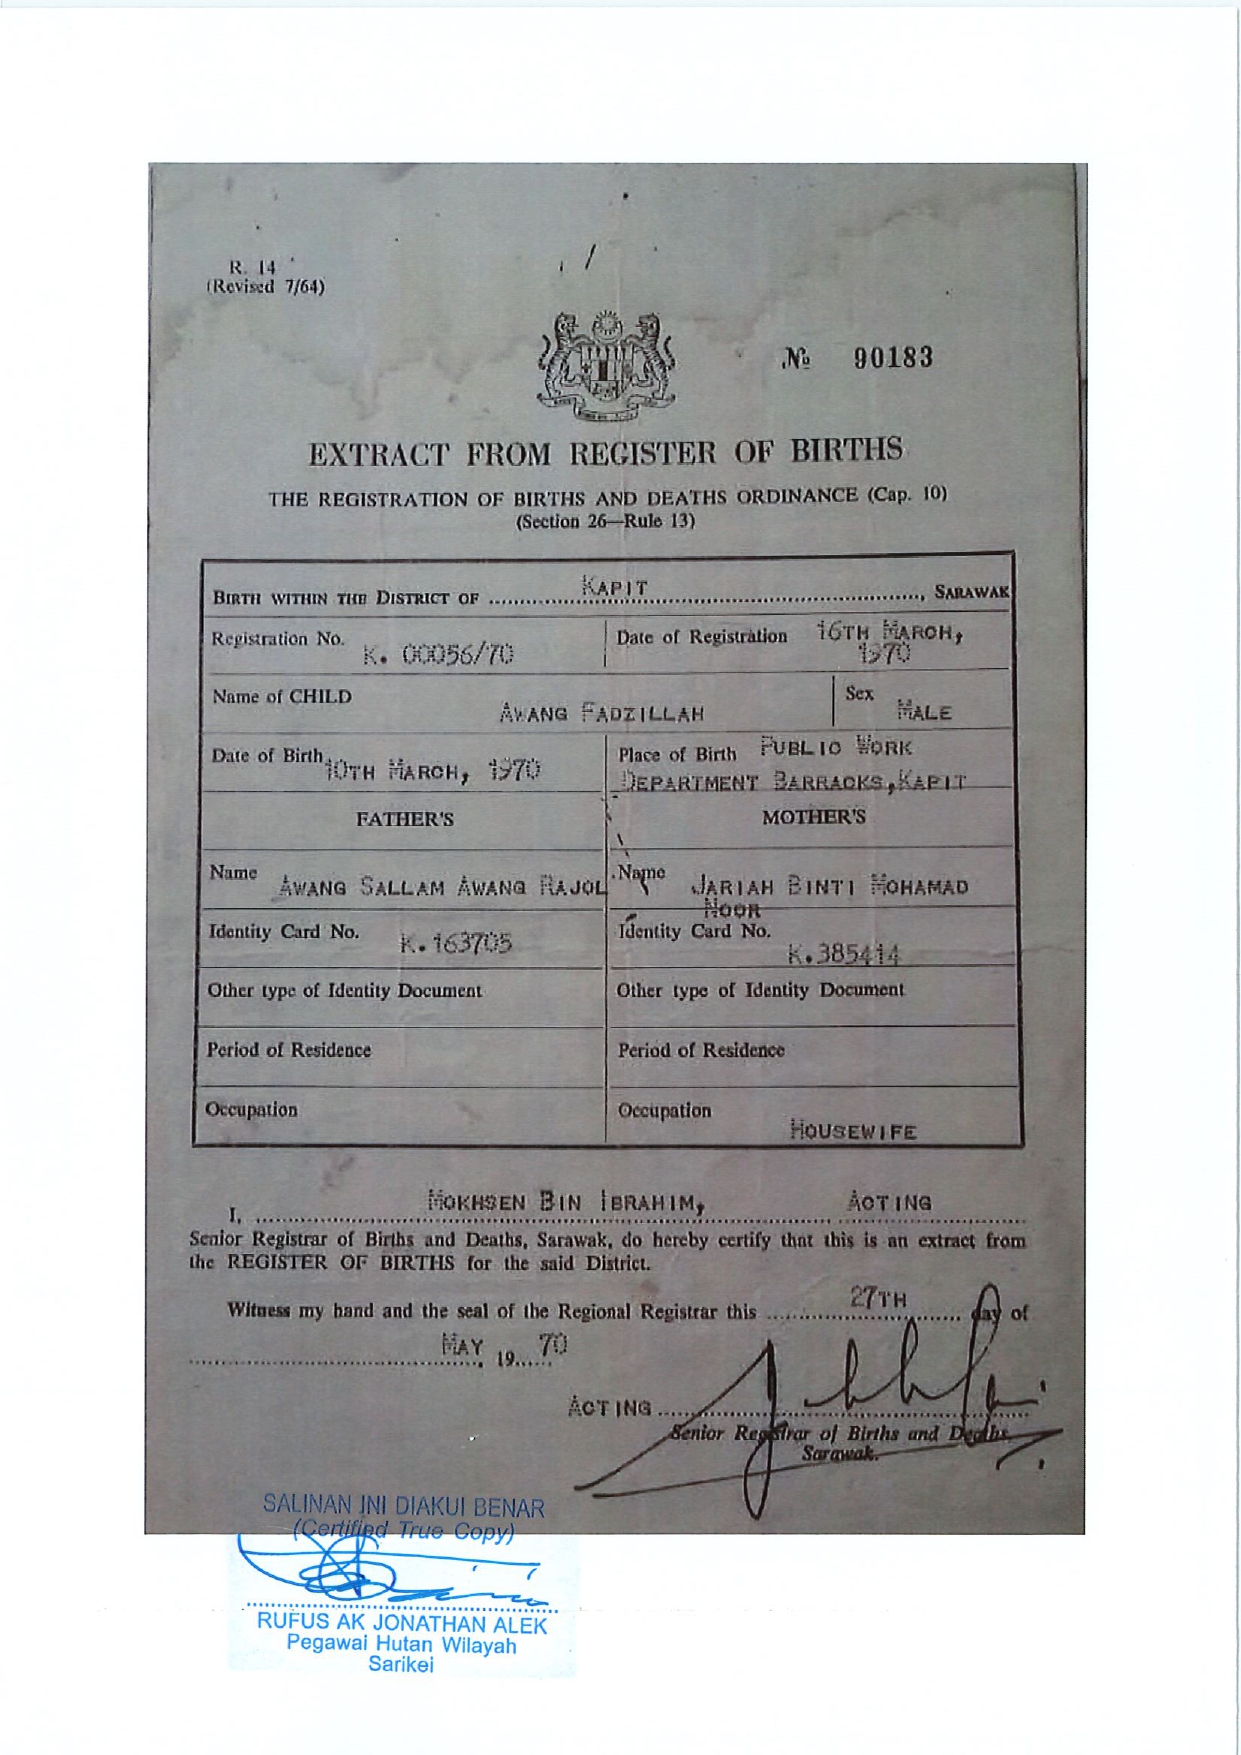 R. 14
(Revised 7/64)
№ 90183
EXTRACT FROM REGISTER OF BIRTHS
THE REGISTRATION OF BIRTHS AND DEATHS ORDINANCE (Cap. 10)
(Section 26—Rule 13)
BIRTH WITHIN THE DISTRICT OF KAPIT, SARAWAK
Registration No. K. 00056/70
Date of Registration 16TH MARCH,
1970
Name of CHILD AWANG FADZILLAH
Sex MALE
Date of Birth 10TH MARCH, 1970
Place of Birth PUBLIC WORK
DEPARTMENT BARRACKS, KAPIT
FATHER'S MOTHER'S
Name AWANG SALLAM AWANG RAJOL
Name JARIAH BINTI MOHAMAD
NOOR
Identity Card No. K.163705
Identity Card No. K.385414
Other type of Identity Document Other type of Identity Document
Period of Residence Period of Residence
Occupation
Occupation HOUSEWIFE
I, MOKHSEN BIN IBRAHIM, ACTING
Senior Registrar of Births and Deaths, Sarawak, do hereby certify that this is an extract from
the REGISTER OF BIRTHS for the said District.
Witness my hand and the seal of the Regional Registrar this 27TH day of
MAY, 19 70
ACTING
Senior Registrar of Births and Deaths,
Sarawak.
SALINAN INI DIAKUI BENAR
(Certified True Copy)
RUFUS AK JONATHAN ALEK
Pegawai Hutan Wilayah
Sarikei